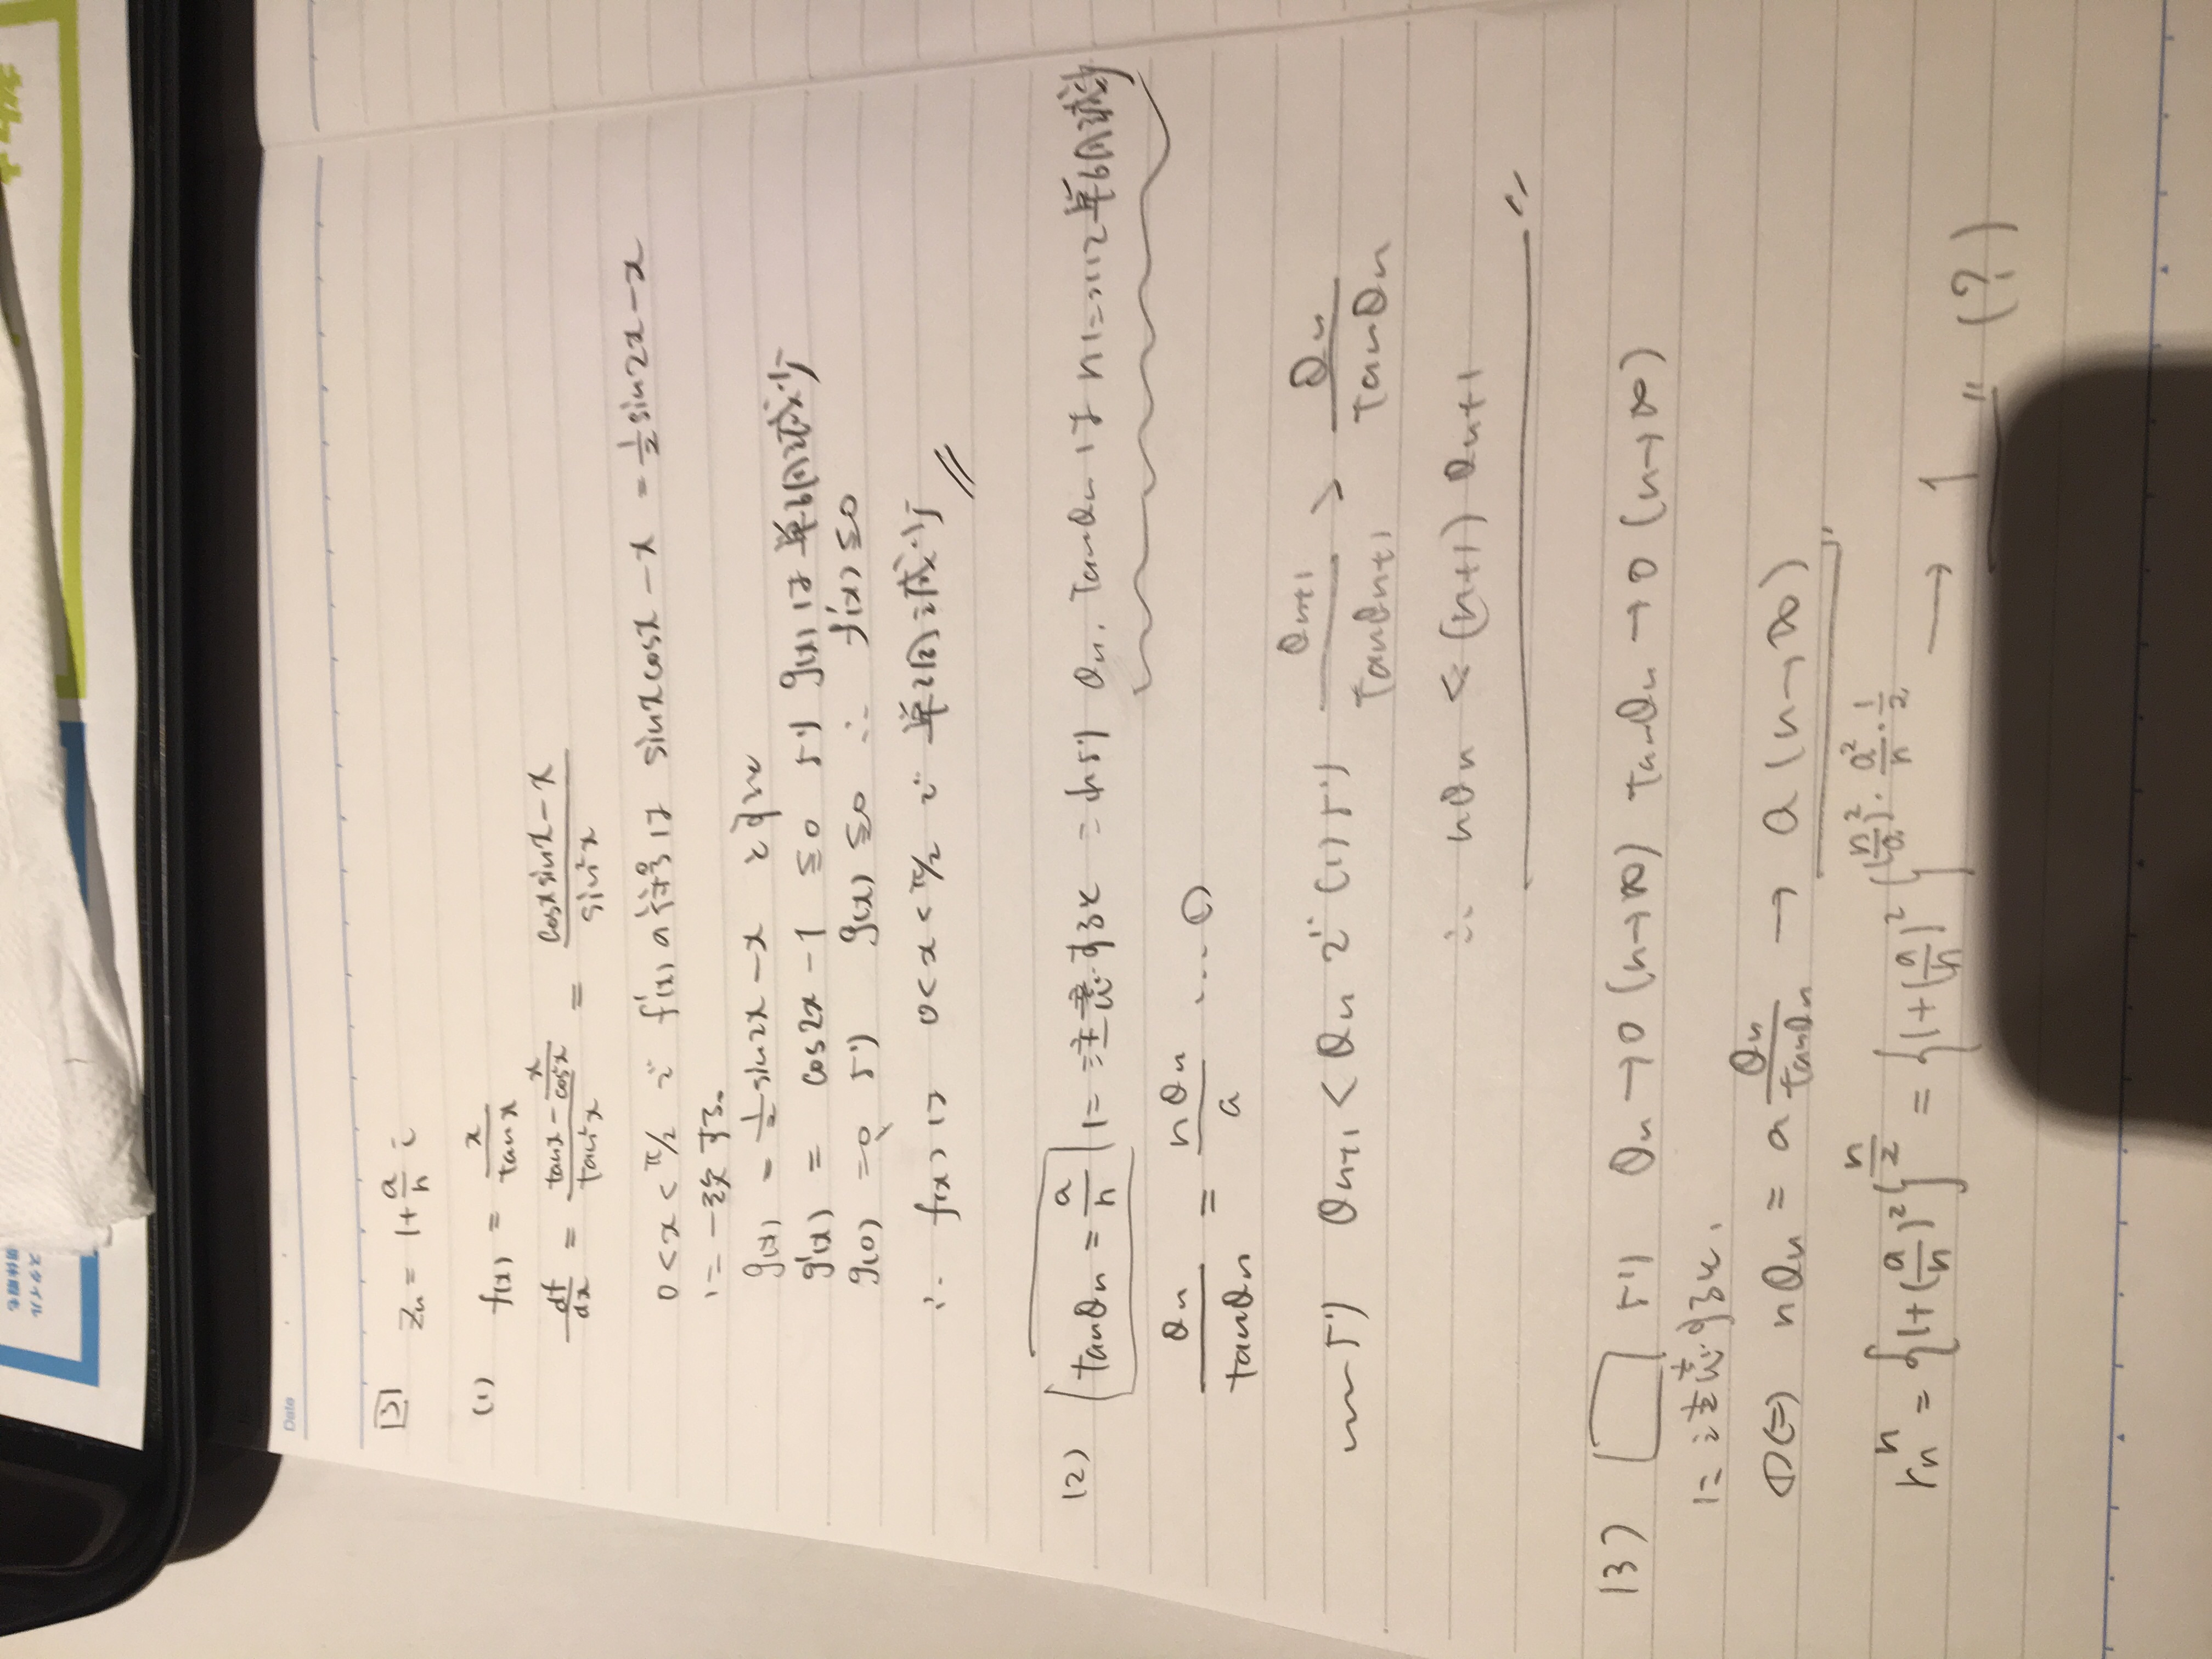 Date
[3] Zn = 1 + a/n i
(1) f(x) = x/tanx
df/dx = (tanx - x/cos²x)/tan²x = (cosxsinx - x)/sin²x
0<x<π/2 で f'(x)の符号は sinxcosx - x = 1/2 sin2x - x
に一致する。
g(x) = 1/2 sin2x - x とすれば
g'(x) = cos2x - 1 ≦ 0 より g(x)は単調減少
g(0) = 0 より g(x) ≦ 0 ∴ f'(x) ≦ 0
∴ f(x)は 0<x<π/2 で 単調減少 //
(2) (tanθn = a/n) に注意すると = れより θn, tanθn は nについて単調減少
θn/tanθn = nθn/a ・・・①
〰より θn+1 < θn で (1)より θn+1/tanθn+1 > θn/tanθn
∴ nθn < (n+1)θn+1 〃
(3) □より θn → 0 (n→∞) tanθn → 0 (n→∞)
に注意すると,
①⇔ nθn = a θn/tanθn → a (n→∞) 〃
rn^n = {1+(a/n)²}^(n/2) = {1+(a/n)²}^((n/a)²・a²/n・1/2) → 1 〃 (?)